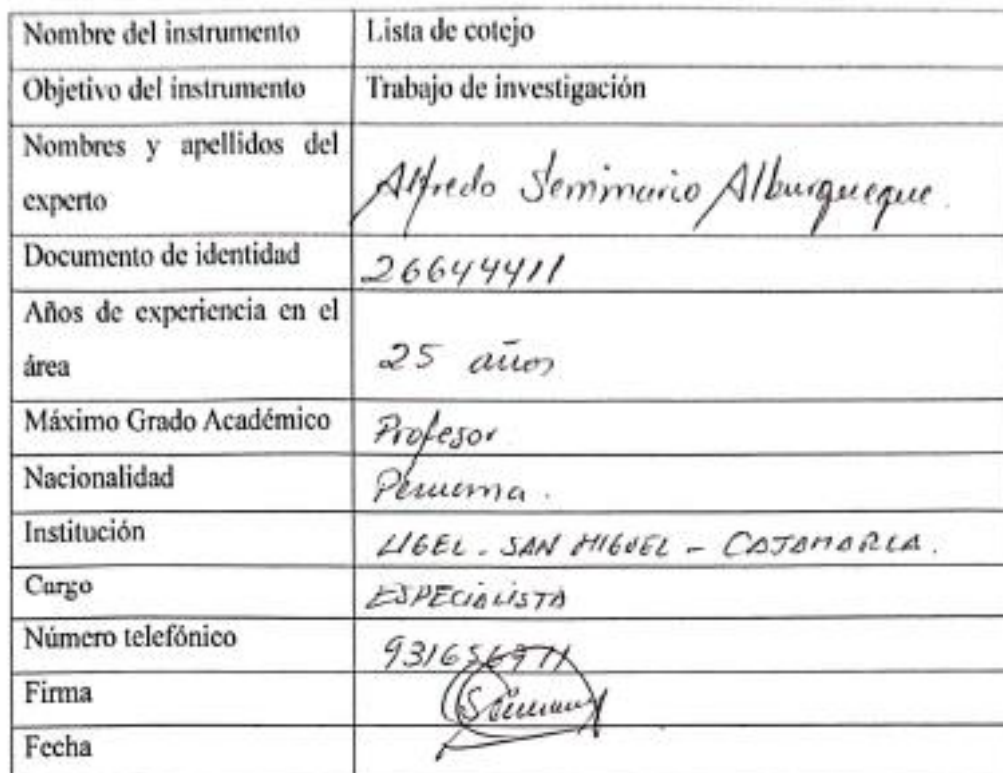 Nombre del instrumento Lista de cotejo
Objetivo del instrumento Trabajo de investigación
Nombres y apellidos del
experto Alfredo Seminario Alburqueque.
Documento de identidad 26644411
Años de experiencia en el
área 25 años
Máximo Grado Académico Profesor
Nacionalidad Peruana.
Institución UGEL - SAN MIGUEL - CAJAMARCA.
Cargo ESPECIALISTA
Número telefónico
Firma
Fecha